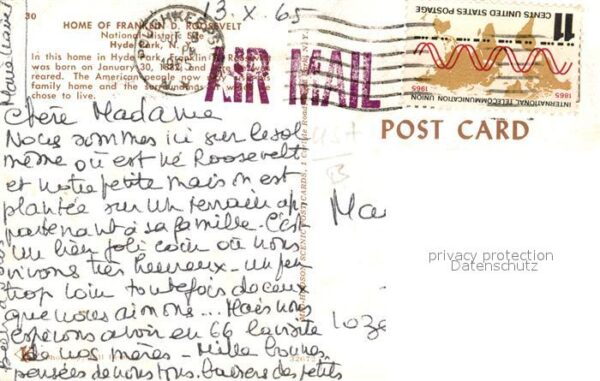 30
13.X.65
HOME OF FRANKLIN D. ROOSEVELT
National Historic Site
Hyde Park, N. Y.
In this home in Hyde Park, Franklin D. Roosevelt
was born on January 30, 1882, and here
reared. The American people now
family home and the surroundings in which he
chose to live.
AIR MAIL
11
CENTS UNITED STATES POSTAGE
INTERNATIONAL TELECOMMUNICATION UNION
1865
1965
POST CARD
Chère Madame
Nous sommes ici sur le sol
même où est né Roosevelt
et notre petite maison est
plantée sur un terrain ap
partenant à sa famille. C'est
un bien joli coin où nous
vivons très heureux - un peu
trop loin toutefois de ceux
que nous aimons... Mais nous
espérons avoir en 66 la visite
de nos mères - Mille bonnes
pensées de nous tous. baisers des petits
Ma
Loze
privacy protection
Datenschutz